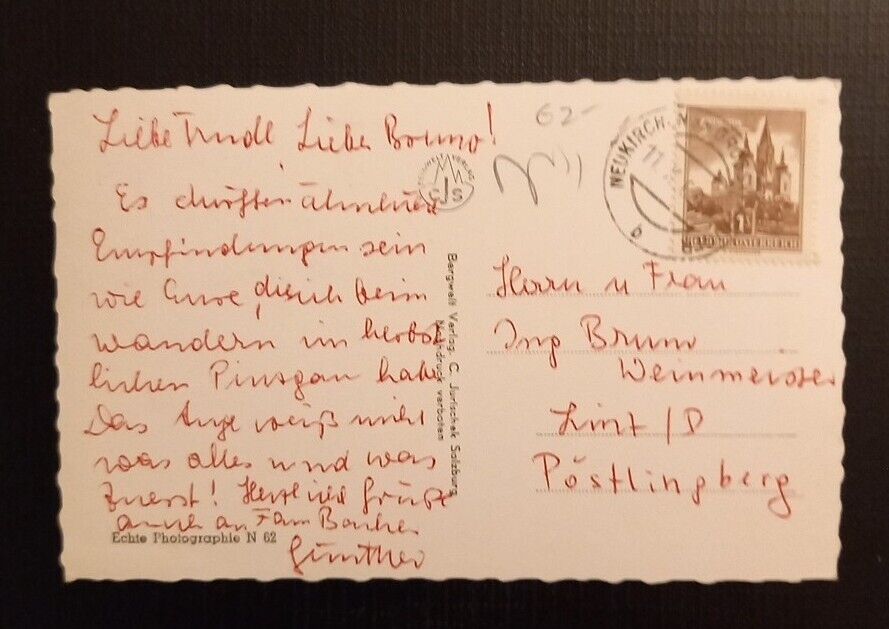 Liebe Trudl, Liebe Bruno!
Es dürften ähnliche
Empfindungen sein
wie Eure, die ich beim
wandern im herbst
lichen Pinzgau habe
Das Auge weiß nicht
was alles und was
zuerst! Herzliche Grüße
auch an Fam
Günther
Echte Photographie N 62
Bergwelt Verlag, C. Jurischek Salzburg
Nachdruck verboten
CJS
62-
NEUKIRCHEN
b
1
REPUBLIK ÖSTERREICH
Herrn u Frau
Ing Bruno
Weinmeister
Linz / D
Pöstlingberg